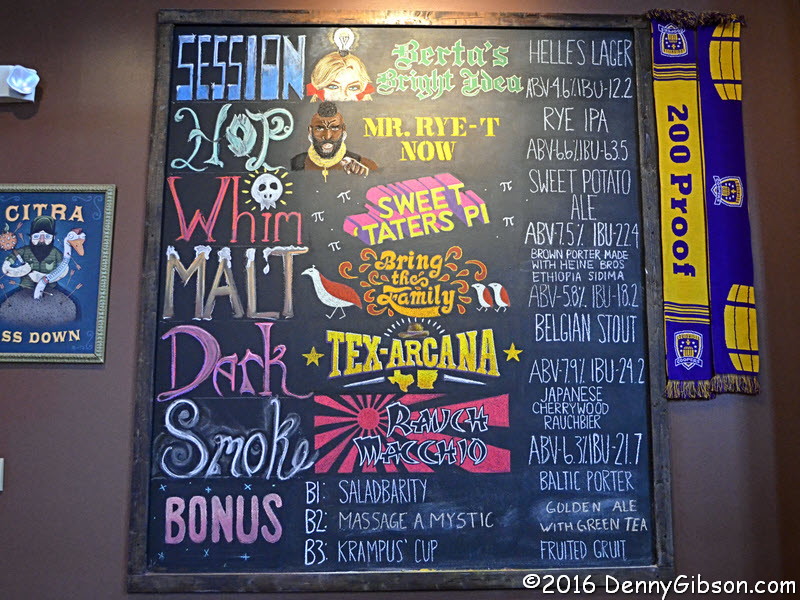 SESSION
Berta's
Bright Idea
HELLES LAGER
ABV-4.6% IBU-12.2
HOP
MR. RYE-T
NOW
RYE IPA
ABV-6.6% IBU-63.5
Whim
π π π π π π
SWEET
'TATERS PI
SWEET POTATO
ALE
ABV-7.5% IBU-22.4
MALT
Bring
the
Family
BROWN PORTER MADE
WITH HEINE BROS
ETHIOPIA SIDIMA
ABV-5.8% IBU-18.2
Dark
TEX-ARCANA
BELGIAN STOUT
ABV-7.9% IBU-24.2
Smoke
RAUCH
MACCHIO
JAPANESE
CHERRYWOOD
RAUCHBIER
ABV-6.3% IBU-21.7
BONUS
B1: SALADBARITY
BALTIC PORTER
B2: MASSAGE A MYSTIC
GOLDEN ALE
WITH GREEN TEA
B3: KRAMPUS' CUP
FRUITED GRUIT
CITRA
SS DOWN
200 Proof
©2016 DennyGibson.com